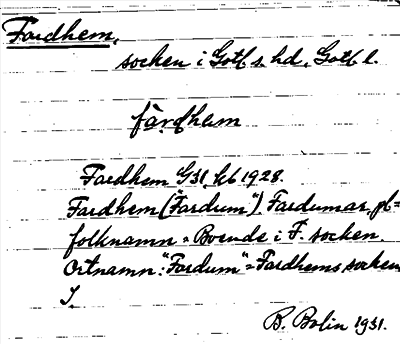 Fardhem,
socken i Gotl. s. hd, Gotl. l.
fàrdhem
Fardhem GSI, kb 1928.
Fardhem ("Fardum"), Fardumar, pl=
folknamn = Boende i F. socken.
Ortnamn: "Fardum" = Fardhems socken
B. Bolin 1931.